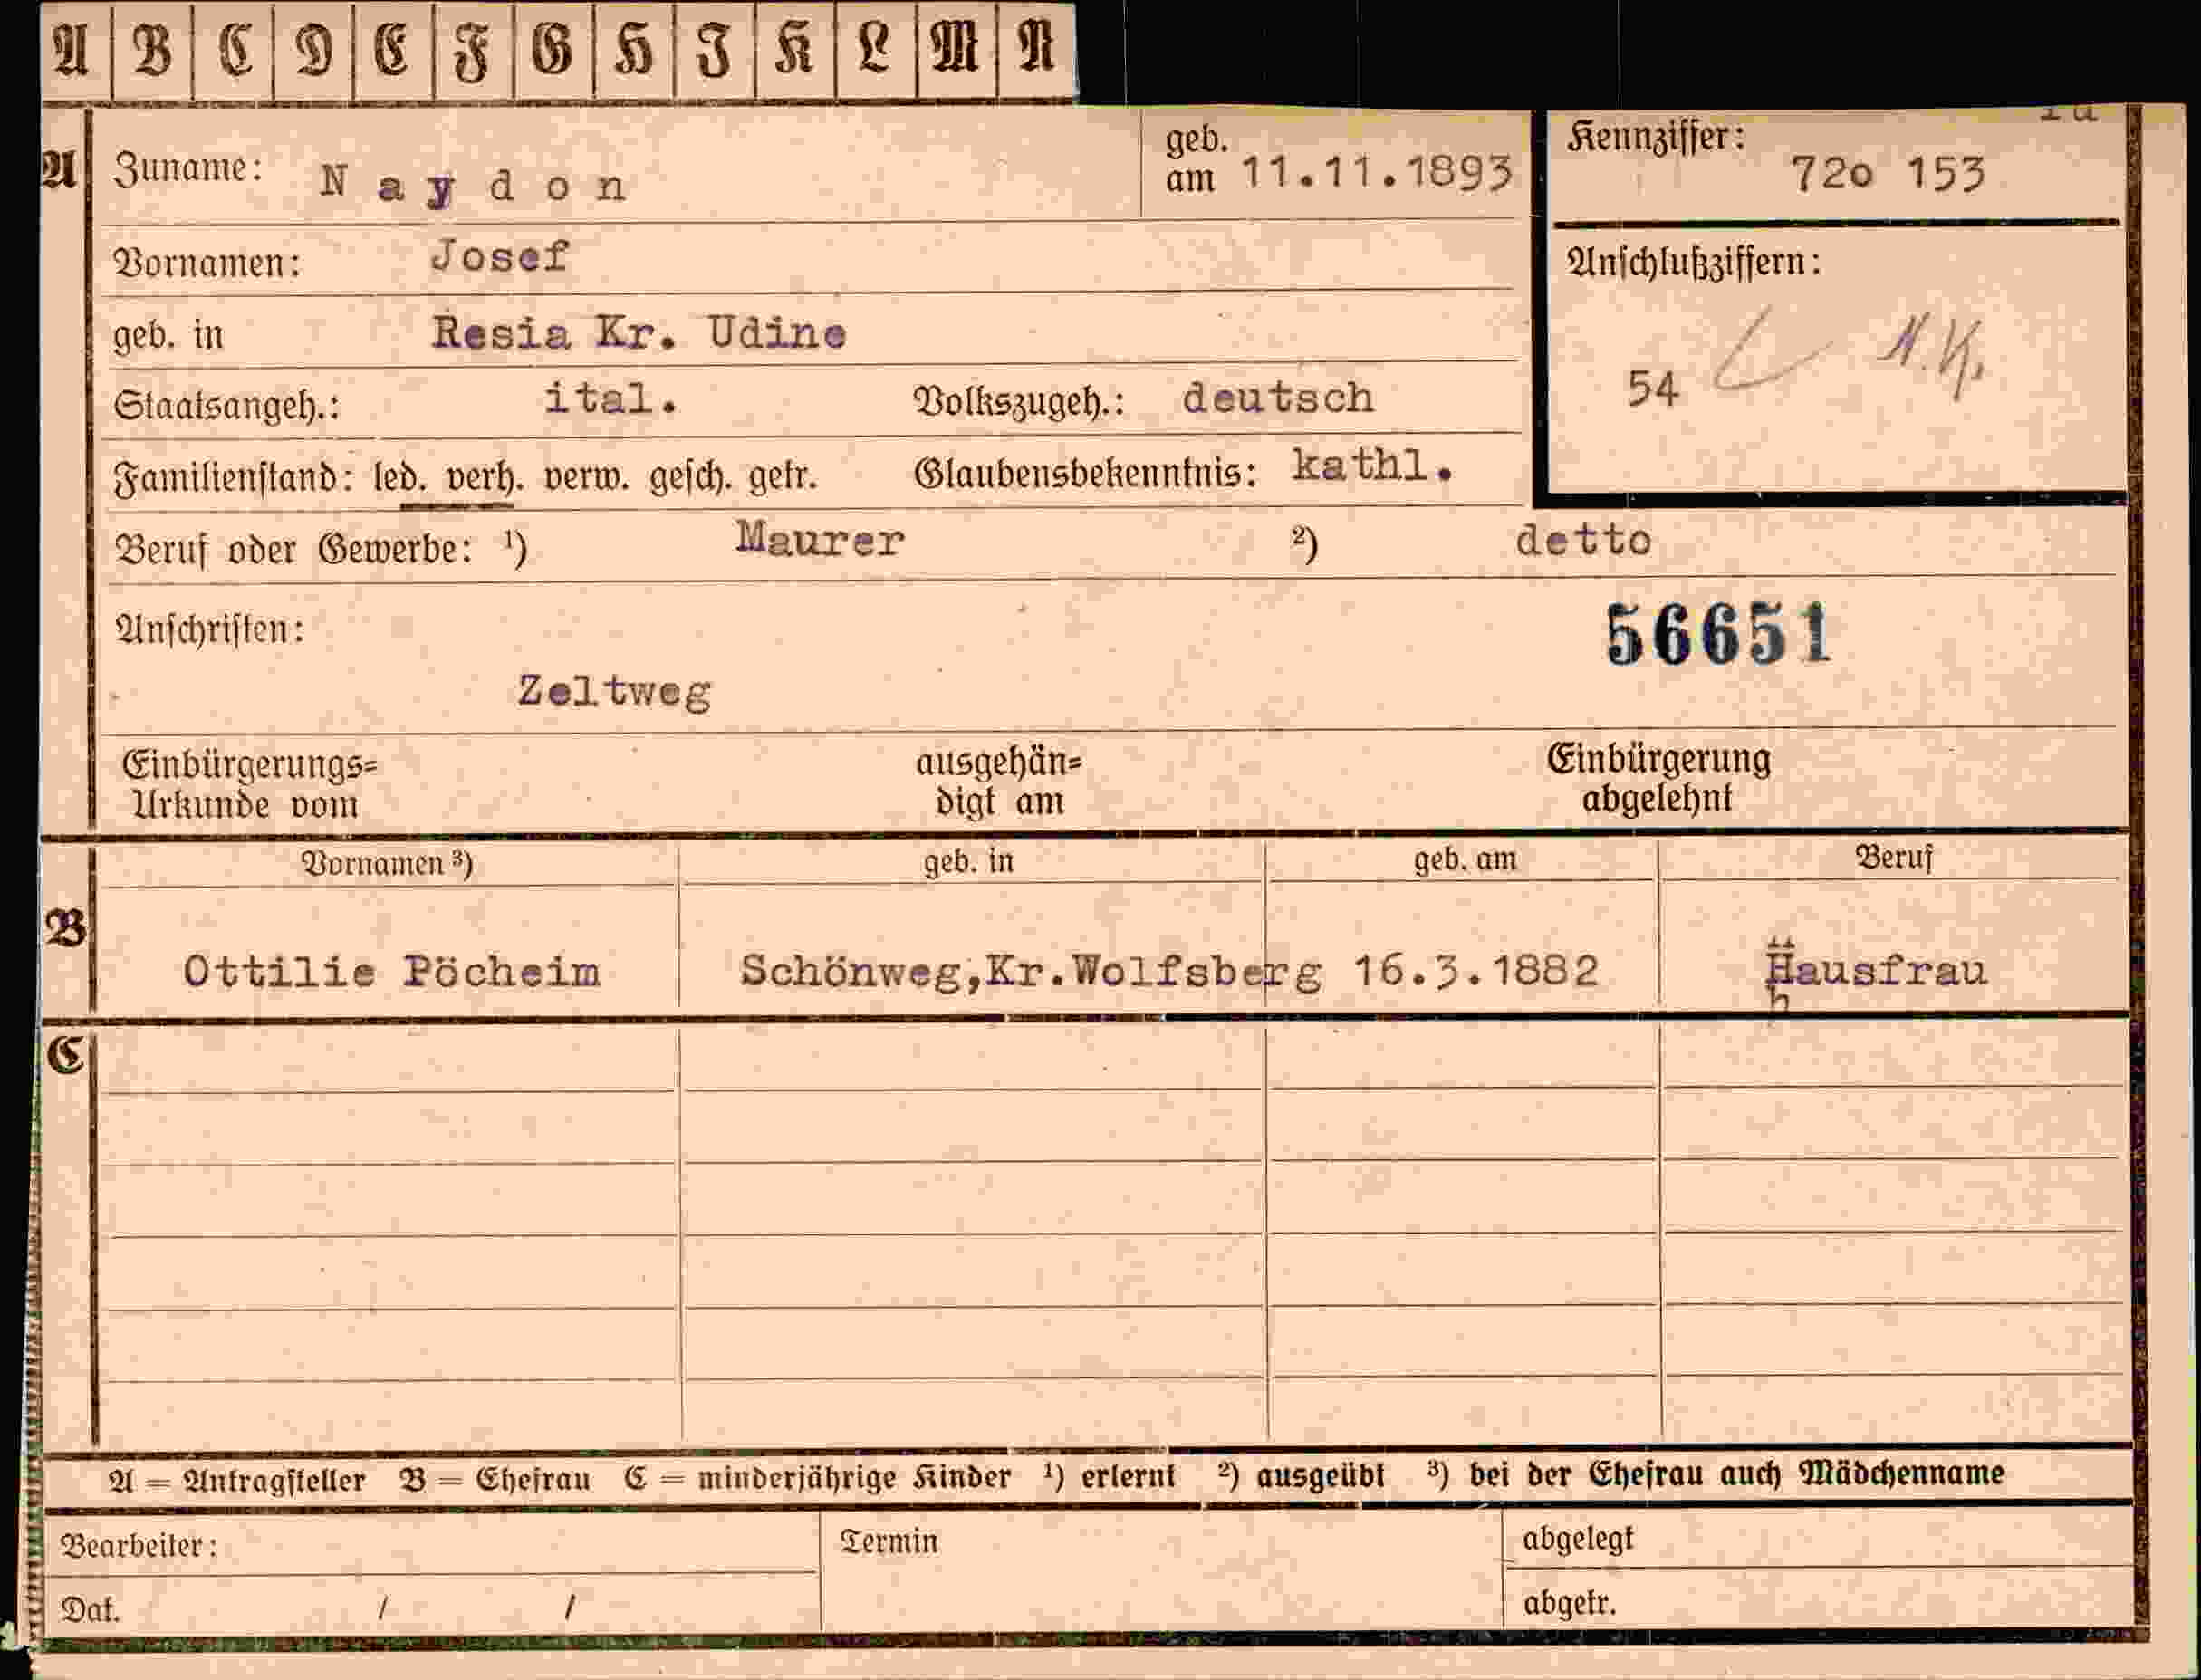 A B C D E F G H I K L M N
A Zuname: Naydon geb. am 11.11.1893
Kennziffer: 72o 153
Vornamen: Josef
Anschlußziffern:
geb. in Resia Kr. Udine
54 N.K.
Staatsangeh.: ital. Volkszugeh.: deutsch
Familienstand: led. verh. verw. gesch. getr. Glaubensbekenntnis: kathl.
Beruf oder Gewerbe: ¹) Maurer ²) detto
Anschriften: 56651
Zeltweg
Einbürgerungs= ausgehän= Einbürgerung
Urkunde vom digt am abgelehnt
Vornamen ³) geb. in geb. am Beruf
B
Ottilie Pöcheim Schönweg,Kr.Wolfsberg 16.3.1882 Hausfrau
C
A = Antragsteller B = Ehefrau C = minderjährige Kinder ¹) erlernt ²) ausgeübt ³) bei der Ehefrau auch Mädchenname
Bearbeiter: Termin abgelegt
Dat. / / abgetr.